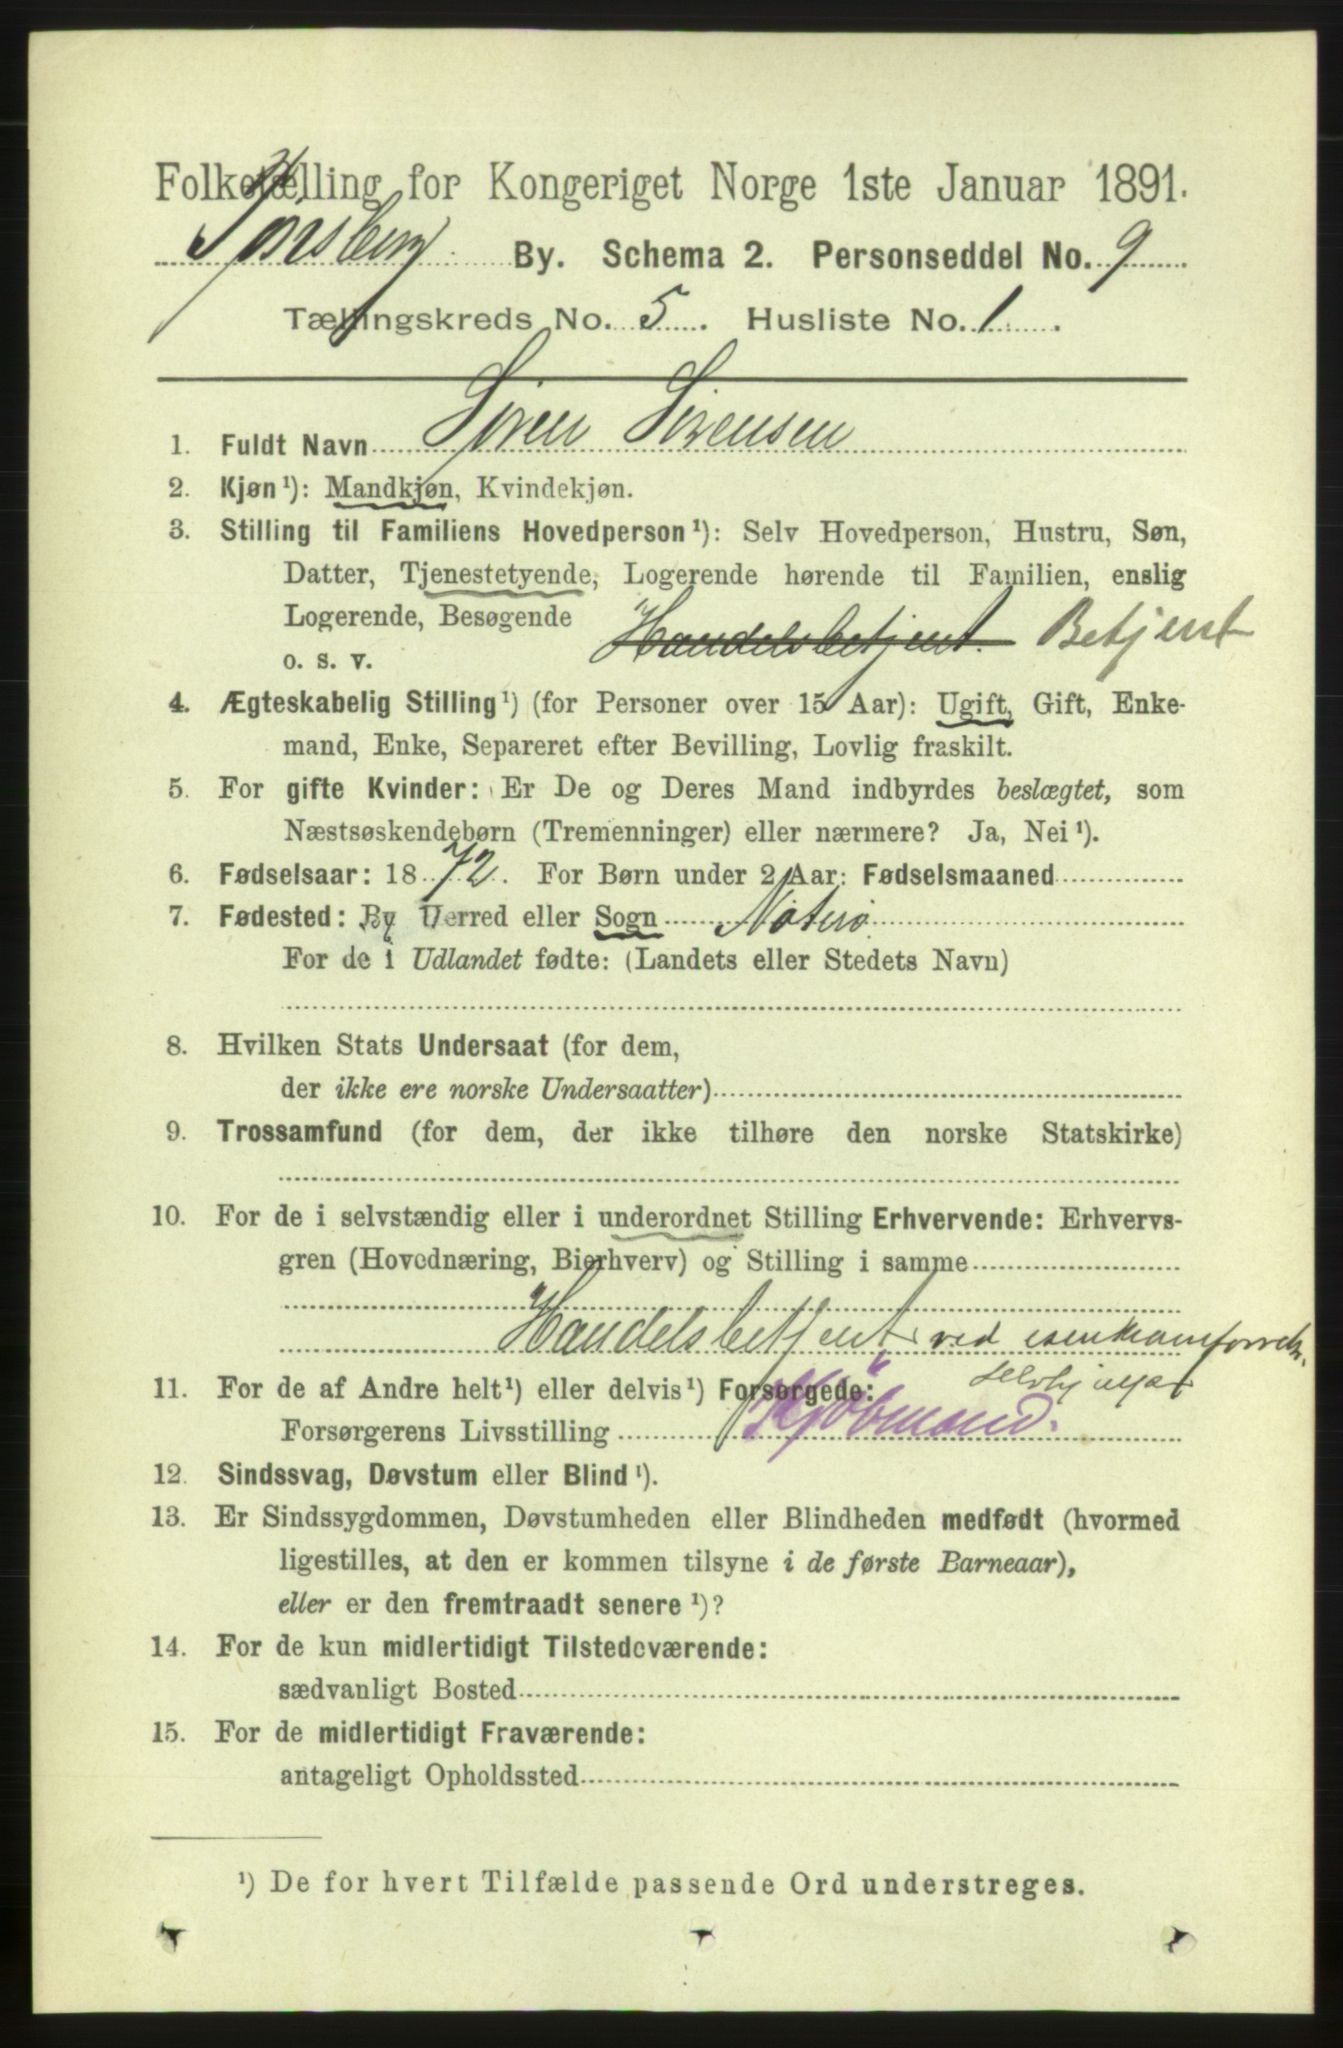 Folketælling for Kongeriget Norge 1ste Januar 1891.
Tønsberg By. Schema 2. Personseddel No. 9
Tællingskreds No. 5. Husliste No. 1.
1. Fuldt Navn Søren Sørensen
2. Kjøn¹): Mandkjøn, Kvindekjøn.
3. Stilling til Familiens Hovedperson¹): Selv Hovedperson, Hustru, Søn,
Datter, Tjenestetyende, Logerende hørende til Familien, enslig
Logerende, Besøgende Handelsbetjent. Betjent
o. s. v.
4. Ægteskabelig Stilling¹) (for Personer over 15 Aar): Ugift, Gift, Enke-
mand, Enke, Separeret efter Bevilling, Lovlig fraskilt.
5. For gifte Kvinder: Er De og Deres Mand indbyrdes beslægtet, som
Næstsøskendebørn (Tremenninger) eller nærmere? Ja, Nei¹).
6. Fødselsaar: 1872. For Børn under 2 Aar: Fødselsmaaned
7. Fødested: By Herred eller Sogn Nøterø
For de i Udlandet fødte: (Landets eller Stedets Navn)
8. Hvilken Stats Undersaat (for dem,
der ikke ere norske Undersaatter)
9. Trossamfund (for dem, der ikke tilhøre den norske Statskirke)
10. For de i selvstændig eller i underordnet Stilling Erhvervende: Erhvervs-
gren (Hovednæring, Bierhverv) og Stilling i samme
Handelsbetjent ved isenkramforretn.
11. For de af Andre helt¹) eller delvis¹) Forsørgede:
Forsørgerens Livsstilling Kjøbmand.
12. Sindssvag, Døvstum eller Blind¹).
13. Er Sindssygdommen, Døvstumheden eller Blindheden medfødt (hvormed
ligestilles, at den er kommen tilsyne i de første Barneaar),
eller er den fremtraadt senere¹)?
14. For de kun midlertidigt Tilstedeværende:
sædvanligt Bosted
15. For de midlertidigt Fraværende:
antageligt Opholdssted
¹) De for hvert Tilfælde passende Ord understreges.